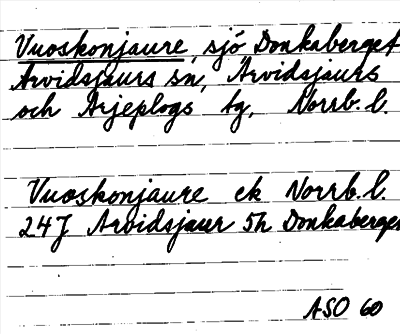 Vuoskonjaure, sjö Donkaberget
Arvidsjaurs sn, Arvidsjaurs
och Arjeplogs tg, Norrb. l.
Vuoskonjaure ek Norrb. l.
24J Arvidsjaur 5h Donkaberget
ASO 60